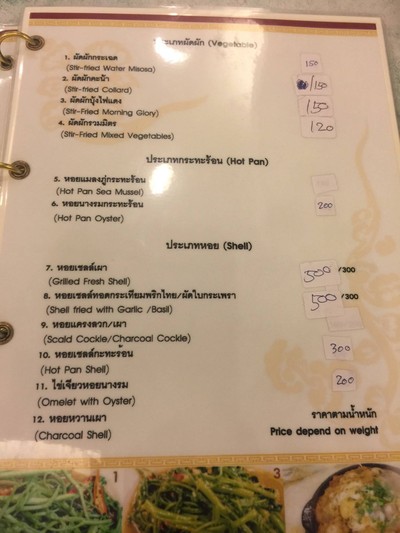 ประเภทผัดผัก (Vegetable)
1. ผัดผักกระเฉด 150
(Stir-fried Water Misosa)
2. ผัดผักคะน้า /150
(Stir-fried Collard)
3. ผัดผักบุ้งไฟแดง 150
(Stir-Fried Morning Glory)
4. ผัดผักรวมมิตร 120
(Stir-Fried Mixed Vegetables)
ประเภทกระทะร้อน (Hot Pan)
5. หอยแมลงภู่กระทะร้อน
(Hot Pan Sea Mussel)
6. หอยนางรมกระทะร้อน 200
(Hot Pan Oyster)
ประเภทหอย (Shell)
7. หอยเชลล์เผา 500 /300
(Grilled Fresh Shell)
8. หอยเชลล์ทอดกระเทียมพริกไทย/ผัดใบกระเพรา 500 /300
(Shell fried with Garlic /Basil)
9. หอยแครงลวก/เผา
(Scald Cockle/Charcoal Cockle)
10. หอยเชลล์กะทะร้อน 300
(Hot Pan Shell)
11. ไข่เจียวหอยนางรม 200
(Omelet with Oyster)
12. หอยหวานเผา ราคาตามน้ำหนัก
(Charcoal Shell) Price depend on weight
1
3